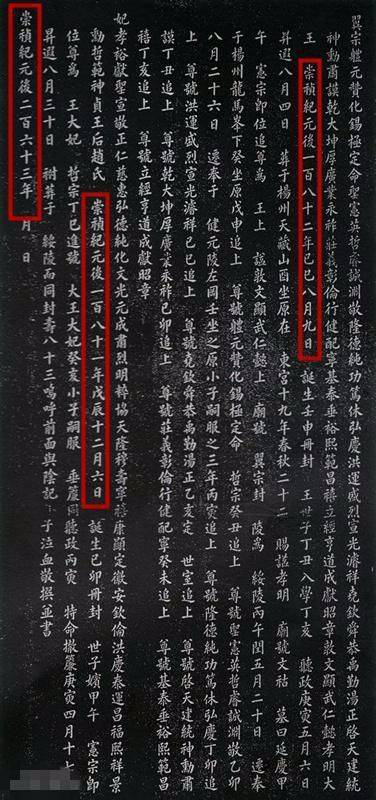 翼宗體元贊化錫極定命聖憲英哲睿誠淵敬隆德純功篤休弘慶洪運盛烈宣光濬祥堯欽舜恭禹勤湯正啓天建統
神勳肅謨乾大坤厚廣業永祚莊義彰倫行健配寧基泰垂裕熙範昌禧立經亨道成獻昭章敦文顯武仁懿孝明大
王 崇禎紀元後一百八十二年己巳八月九日 誕生壬申冊封 王世子丁丑入學丁亥 聽政庚寅五月六日
昇遐八月四日 葬于楊州天藏山酉坐原在 東宮十九年春秋二十二 賜諡孝明 廟號文祜 墓曰延慶甲
午 憲宗卽位追尊爲 王上 諡敦文顯武仁懿上 廟號 翼宗封 陵爲 綏陵丙午閏五月二十日 遷奉
于楊州龍馬峯下癸坐原戊申追上 尊號體元贊化錫極定命 哲宗癸丑追上 尊號聖憲英哲睿誠淵敬乙卯
八月二十六日 遷奉于 健元陵左岡壬坐之原小子嗣服之三年丙寅追上 尊號隆德純功篤休弘慶丁卯追
上 尊號洪運盛烈宣光濬祥己巳追上 尊號堯欽舜恭禹勤湯正乙亥定 世室追上 尊號啓天建統神勳肅
謨丁丑追上 尊號乾大坤厚廣業永祚己卯追上 尊號莊義彰倫行健配寧癸未追上 尊號基泰垂裕熙範昌
禧丁亥追上 尊號立經亨道成獻昭章
妃孝裕獻聖宣敬正仁慈惠弘德純化文光元成肅烈明粹協天隆穆壽寧禧康顯定徽安欽倫洪慶泰運昌福熙祥景
勳哲範神貞王后趙氏 崇禎紀元後一百八十一年戊辰十二月六日 誕生己卯冊封 世子嬪甲午 憲宗卽
位尊爲 王大妃 哲宗丁巳進號 大王大妃癸亥小子嗣服 垂簾同聽政丙寅 特命撤簾庚寅四月十七
昇遐八月三十日 祔葬于 綏陵而同封壽八十三嗚呼前面與陰記 子泣血敬撰並書
崇禎紀元後二百六十三年 月 日